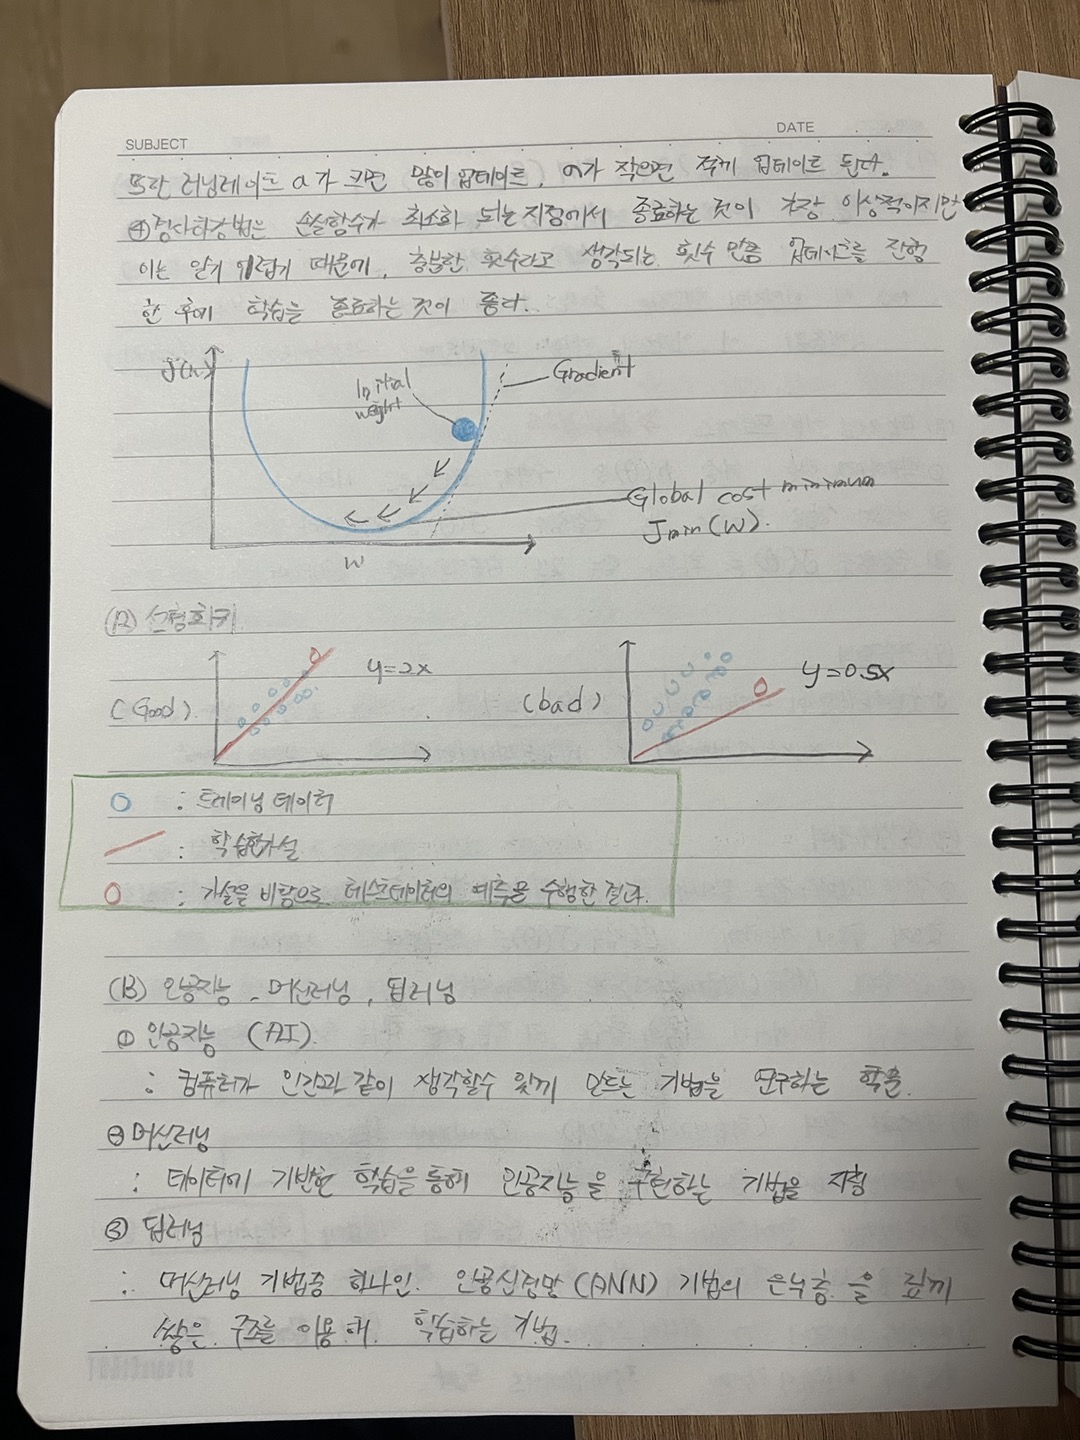 SUBJECT
DATE
또한 러닝레이트 α가 크면 많이 업데이트, α가 작으면 적게 업데이트 된다.
④ 경사하강법은 손실함수가 최소화 되는 지점에서 종료하는 것이 가장 이상적이지만
이는 알기 어렵기 때문에, 충분한 횟수라고 생각되는 횟수 만큼 업데이트를 진행
한 후에 학습을 종료하는 것이 좋다.
J(w)
Initial
weight
Gradient
Global cost minimum
Jmin(W).
W
(A) 선형회귀
(Good).
y=2x
(bad)
y=0.5x
: 트레이닝 데이터
: 학습한가설
: 가설을 바탕으로 테스트데이터의 예측을 수행한 결과.
(B) 인공지능, 머신러닝, 딥러닝
① 인공지능 (AI).
: 컴퓨터가 인간과 같이 생각할수 있게 만드는 기법을 연구하는 학문.
② 머신러닝
: 데이터에 기반한 학습을 통해 인공지능을 구현하는 기법을 지칭
③ 딥러닝
: 머신러닝 기법중 하나인 인공신경망 (ANN) 기법의 은닉층 을 깊게
쌓은 구조를 이용해, 학습하는 기법.